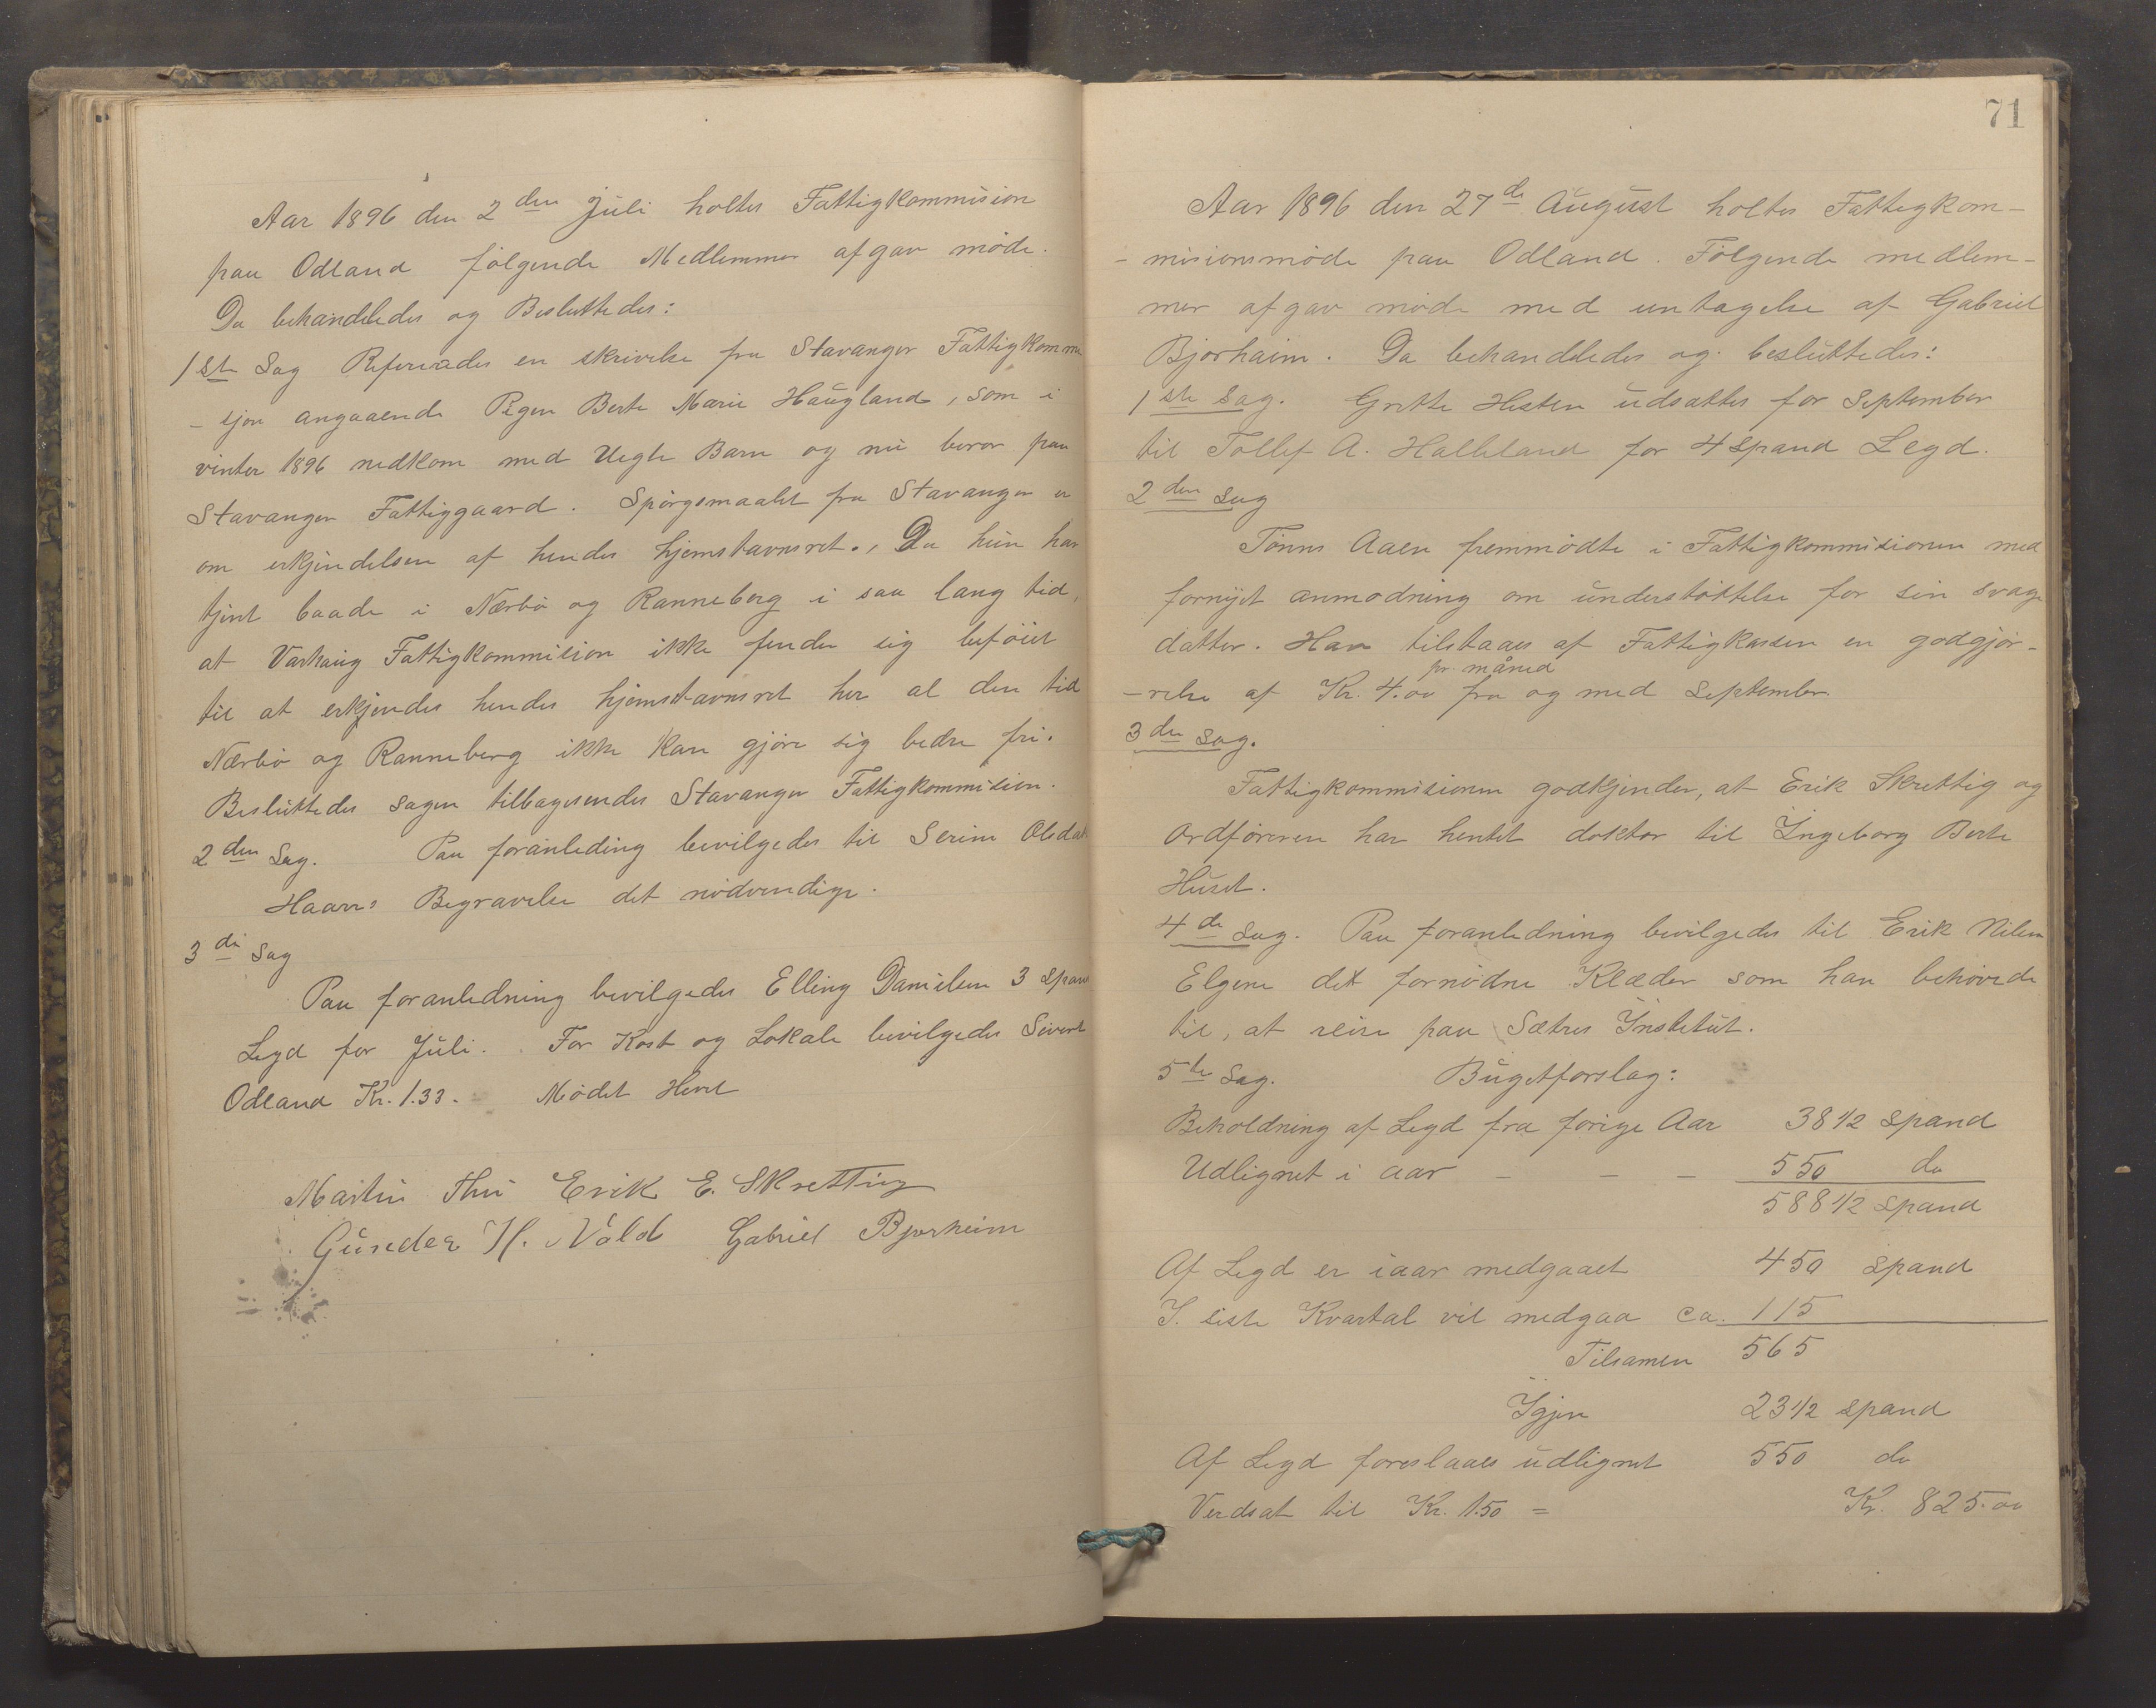 Aar 1896 den 2den Juli holtes Fattigkommision
paa Odland følgende Medlemmer afgav møde.
Da behandledes og Besluttedes:
1ste Sag Refereredes en skrivelse fra Stavanger Fattigkommi
- sjon angaaende Pigen Berte Marie Haugland, som i
vinter 1896 nedkom med Uegte Barn og nu beror paa
Stavanger Fattiggaard. Spørgsmaalet fra Stavanger er
om erkjendelsen af hendes hjemstavnsret., Da hun har
tjent baade i Nærbø og Ranneberg i saa lang tid,
at Varhaug Fattigkommision ikke finder sig beføiet
til at erkjendes hendes hjemstavnsret her al den tid
Nærbø og Ranneberg ikke kan gjøre sig bedre fri.
Besluttedes sagen tilbagesendes Stavanger Fattigkommision.
2den Sag. Paa foranleding bevilgedes til Serine Olsdat
Haars Begravelse det nødvendige.
3di Sag
Paa foranledning bevilgedes Elling Danielsen 3 Span
Legd for Juli. For Kost og Lokale bevilgedes Sivert
Odland Kr. 1.33. Mødet Hevet
Martin Thu Erik E. Skretting
Gunder H. Nålo Gabriel Bjorheim
71
Aar 1896 den 27de August holtes Fattigkom-
- misionsmøde paa Odland. Følgende medlem-
mer afgav møde med untagelse af Gabriel
Bjorhaim. Da behandledes og besluttedes:
1ste Sag. Grette Hesten udsættes for September
til Tollef A. Halleland for 4 Spand Legd.
2den Sag
Tønnes Aaen fremmødte i Fattigkommisionen med
fornyet anmodning om understøttelse for sin svage
datter. Han tilstaaes af Fattigkassen en godgjør-
pr. måned
- relse af Kr. 4.00 fra og med September
3die Sag.
Fattigkommisionen godkjender, at Erik Skrettig og
Ordføreren har hentet doktor til Ingeborg Berte
Huset.
4de Sag. Paa foranledning bevilgedes til Erik Nilsen
Elgene det fornødne Klæder som han behøvede
til, at reise paa Sætres Institut.
5te Sag. Bugetforslag:
Beholdning af Legd fra forige Aar 38 1/2 Spand
Udlignet i aar - - - 550 do
588 1/2 Spand
Af Legd er iaar medgaaet 450 Spand
I siste Kvartal vil medgaa ca. 115
Tilsamen 565
Igjen 23 1/2 Spand
Af Legd foreslaaes udlignet 550 do
Verdsat til Kr. 1.50 = Kr. 825.00